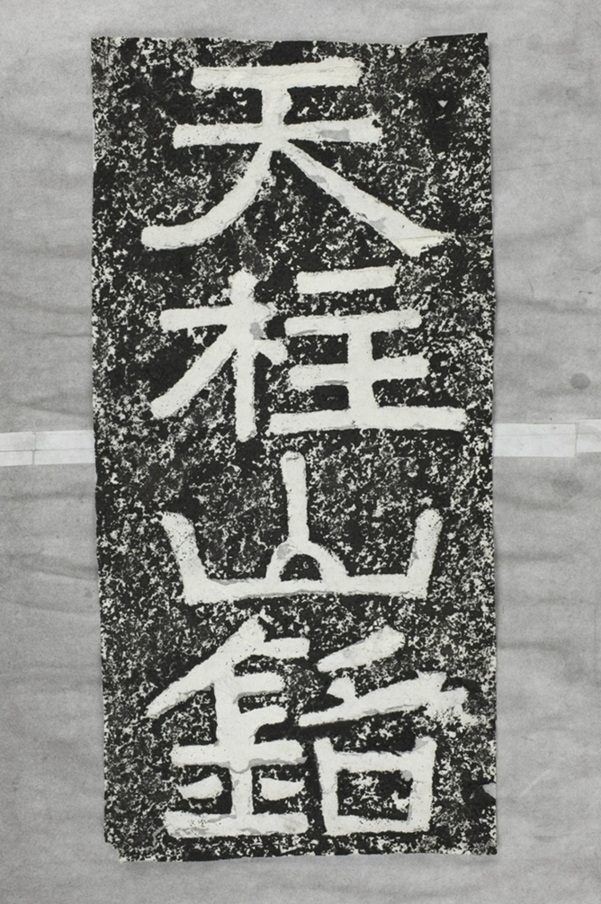 天柱山銘